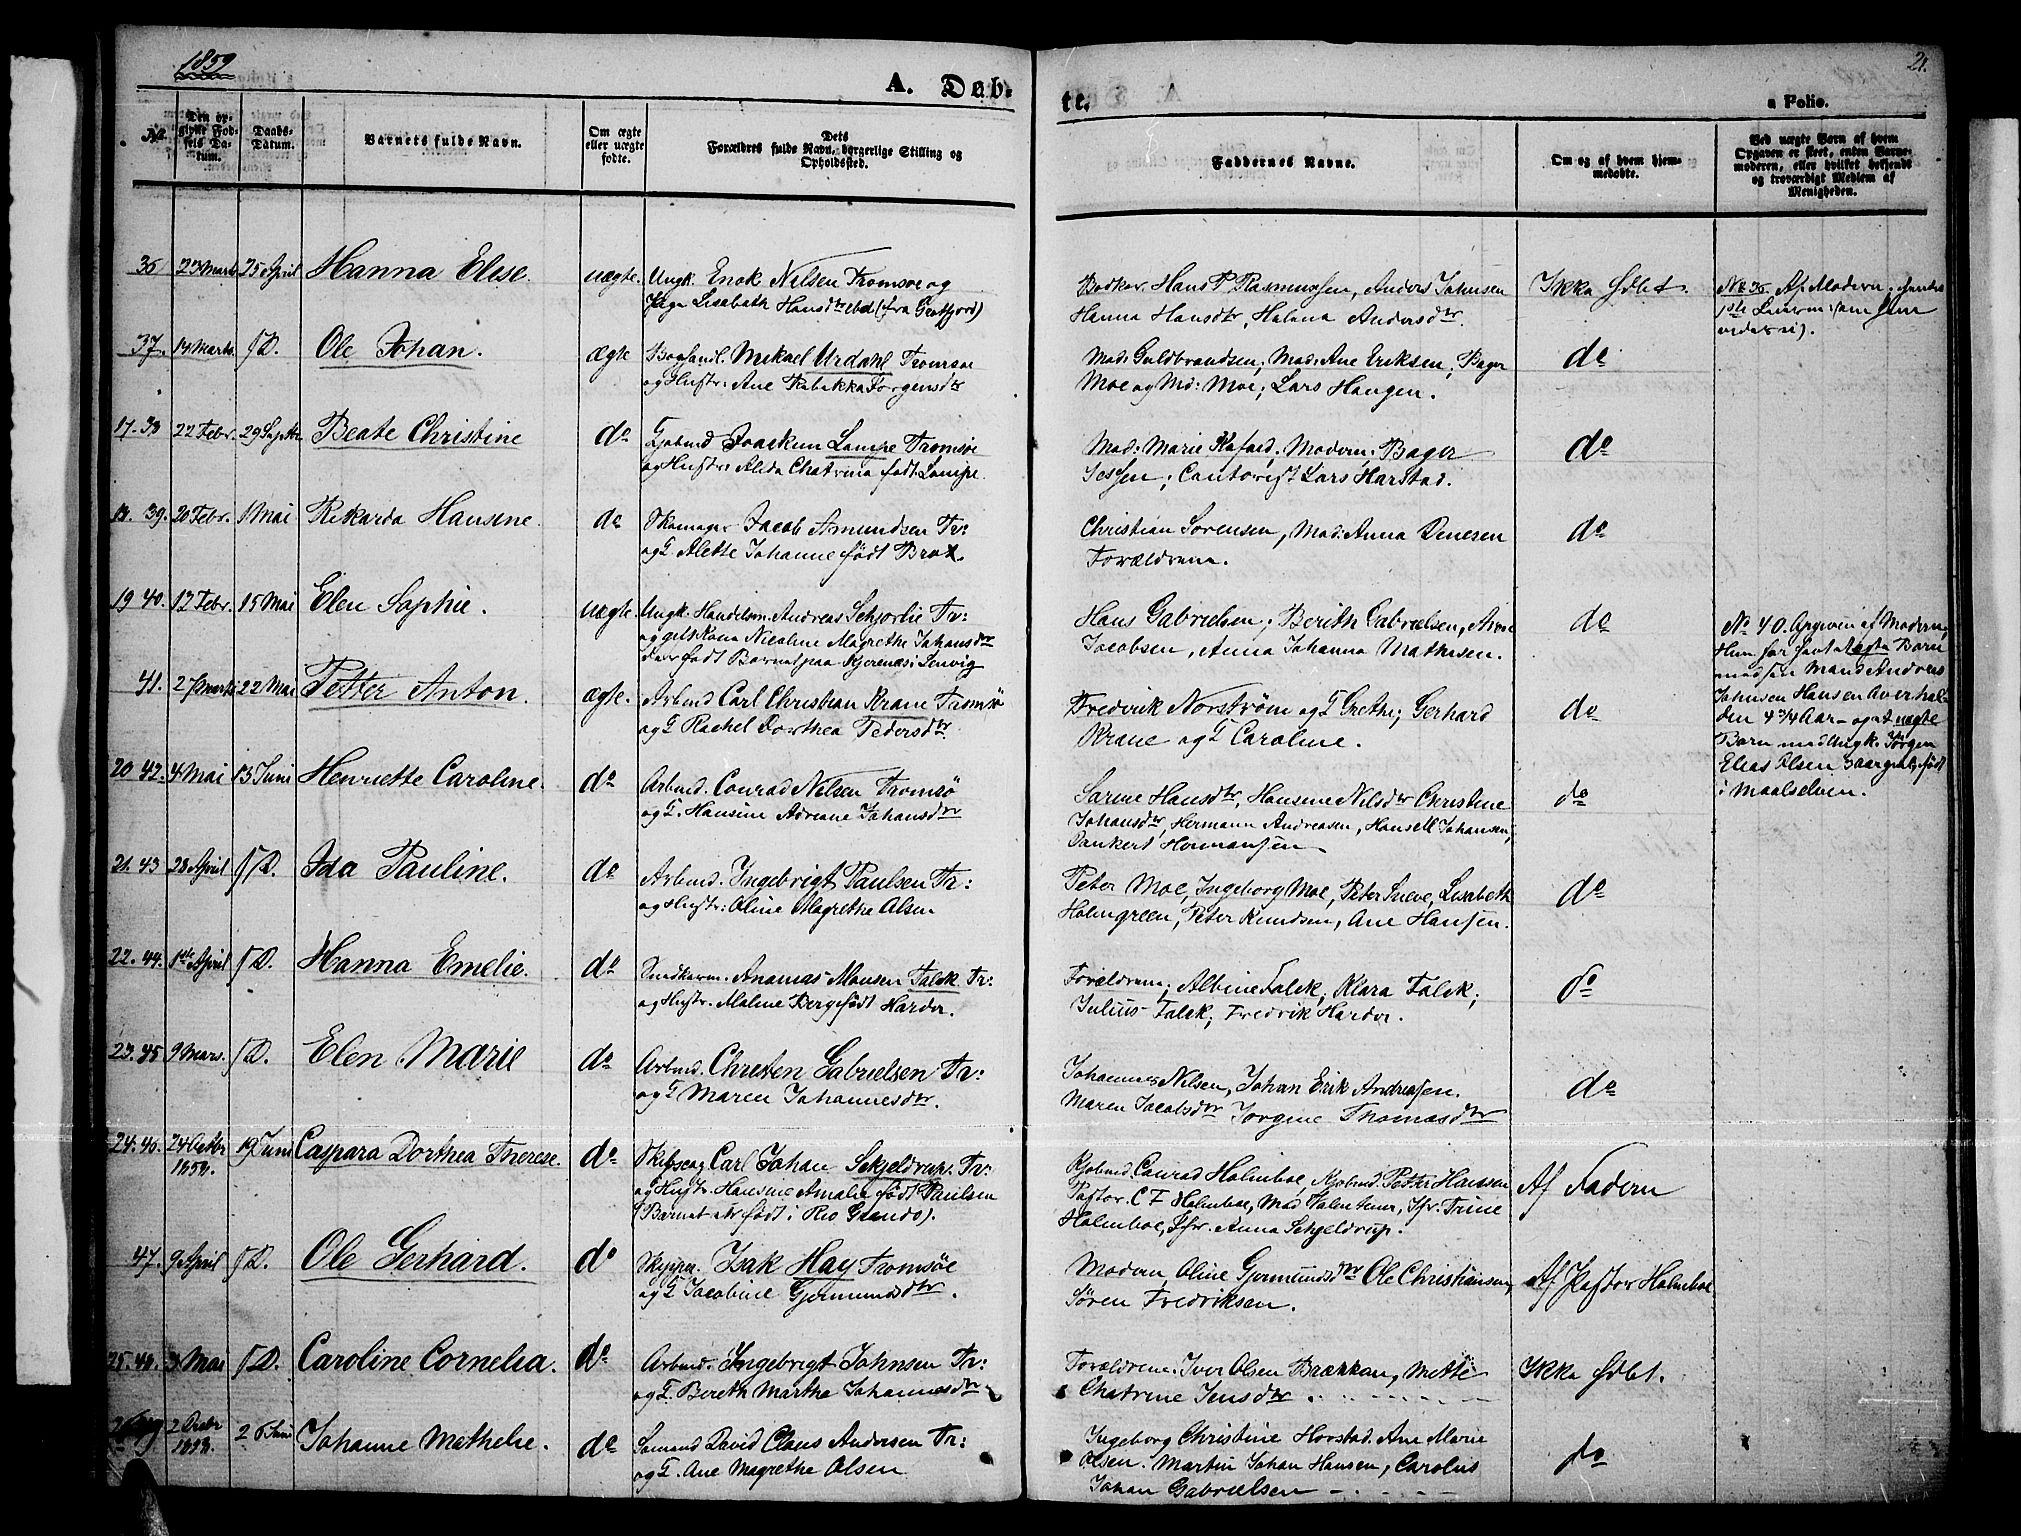 1859
A. Døb-
te.
21.
a Folio.
No.
Den op-
givne Fød-
sels Da-
tum.
Daabs-
Datum.
Barnets fulde Navn.
Om ægte
eller uægte
fødte.
Dets
Forældres fulde Navn, borgerlige Stilling og
Opholdssted.
Faddernes Navne.
Om og af hvem hjem-
medøbte.
Ved uægte Børn af hvem
Opgaven er skeet, enten Barne-
moderen, eller hvilket bekjendt
og troværdigt Medlem af
Menigheden.
36 23 Marts 25 April Hanna Elise. uægte. Ungk. Enok Nilsen Tromsøe og
Pige Lisabeth Hansdtr ibd (fra Grøtfjord)
Bødker Hans P Rasmussen, Anders Johnsen
Hanna Hansdtr, Helena Andersdtr.
Ikke hdbt.
No 36 Af Moderen;
37. 14 Marts S D. Ole Johan. ægte Mikael Urdahl Tromsøe
og Hustr: Ane Rebekka Jørgensdtr
Mad: Guldbrandsen; Mad: Ane Eriksen; Bager
Moe og Md: Moe; Lars Haugen.
do
17. 38 22 Febr. 29 Beate Christine do Joackim Lampe Tromsøe
og Hustr: Alida Chatrina født Lampe.
Mad: Marie Moderen; Bager
Jessen; Lars Harstad.
do
18. 39. 20 Febr. 1 Mai Rikarda Hansine. do Skomager Jacob Amundsen Tr:
og H Alette Johanne født Brox.
Christian Sørensen, Mad: Anna Denesen
Forældrene.
do
19 40. 12 Febr. 15 Mai Elen Sophie. uægte. Ungk. Handelsm. Andreas Tr:
og Nicoline Magrethe Johansdtr
født Barnet paa i Lenvig
Hans Gabrielsen, Berith Gabrielsen,
Jacobsen, Anna Johanna Mathisen.
do
No 40. Opgiven af Moderen,
Hun har havt ægte Børn
med sin Mand Andreas
Johnsen Hansen
den 4 3/4 Aar – og et uægte
Barn med Ungk. Jørgen
Elias Olsen 3 aar født
i Maalselven.
41. 27 Marts 22 Mai Petter Anton. ægte. Arbmd Carl Christian Krane Tromsø
og H Rachel Dorthea Pedersdtr.
Fredrik Norstrøm og H Grethe; Gerhard
Krane og H Caroline.
do
20 42. 4 Mai 13 Juni Henriette Caroline. do Arbmd. Conrad Nilsen Tromsø
og H. Hansine Adriane Johansdtr
Sarine Hansdtr, Hansine Nilsdtr Christine
Johansdtr, Hermann Andreasen, Johansen,
Dankert Hermansen
do
21. 43 28 April S D. Ida Pauline. do Arbmd. Ingebrigt Paulsen Tr:
og Hustr: Oline Magrethe Olsen
Peter Moe, Ingeborg Moe, Peter Lisabeth
Holmgreen, Peter Knudsen, Ane Hansen.
do
22. 44. 1ste April S D. Hanna Emelie. do Ananias Monsen Falck Tr:
og Hustr. Maline Berg født Harder.
Forældrene; Albine Falck; Klara Falck;
Julius Falck; Fredrik Harder.
do
23. 45 9 Mars. S D. Elen Marie do Arbmd. Christen Gabrielsen Tr:
og H Maren Johannesdtr.
Johannes Nilsen, Johan Erik Andreasen.
Maren Jacobsdtr Jørgine Thomasdtr
do
24. 46. 24 Octbr 19 Juni Caspara Dorthea Therese. do Carl Johan Schjeldrup. Tr:
1858. og Hustr. Hansine Amalie født Paulsen
(Barnet er født i Rio Grande).
Kjøbmd. Conrad Holmboe, Kjøbmd. Petter Hanssen
Pastor C F Holmboe, Mad Jfr. Trine
Holmboe, Jfr. Anna Schjeldrup.
Af Faderen
47. 9 April S D. Ole Gerhard. do Skipper. Isak Hay Tromsøe
og H Jacobine Gjermundsdtr.
Moderen, Oline Gjermundsdtr Ole Christiansen,
Søren Fredriksen.
Af Pastor Holmboe
25. 48. 3 Mai S D. Caroline Cornelia. do Arbmd. Ingebrigt Johnsen Tr:
og H. Bereth Martha Johannesdtr
Forældrene; Iver Olsen Brækkan, Mette
Chatrine Jensdtr
Ikke hdbt.
26 Juni Johanne Mathelie. do David Claus Andersen Tr:
1858. og H. Ane Magrethe Olsen.
Ingeborg Christine Horstad. Ane Marie
Olsen. Martin Johan Hansen, Carolus
Johan Gabrielsen
do